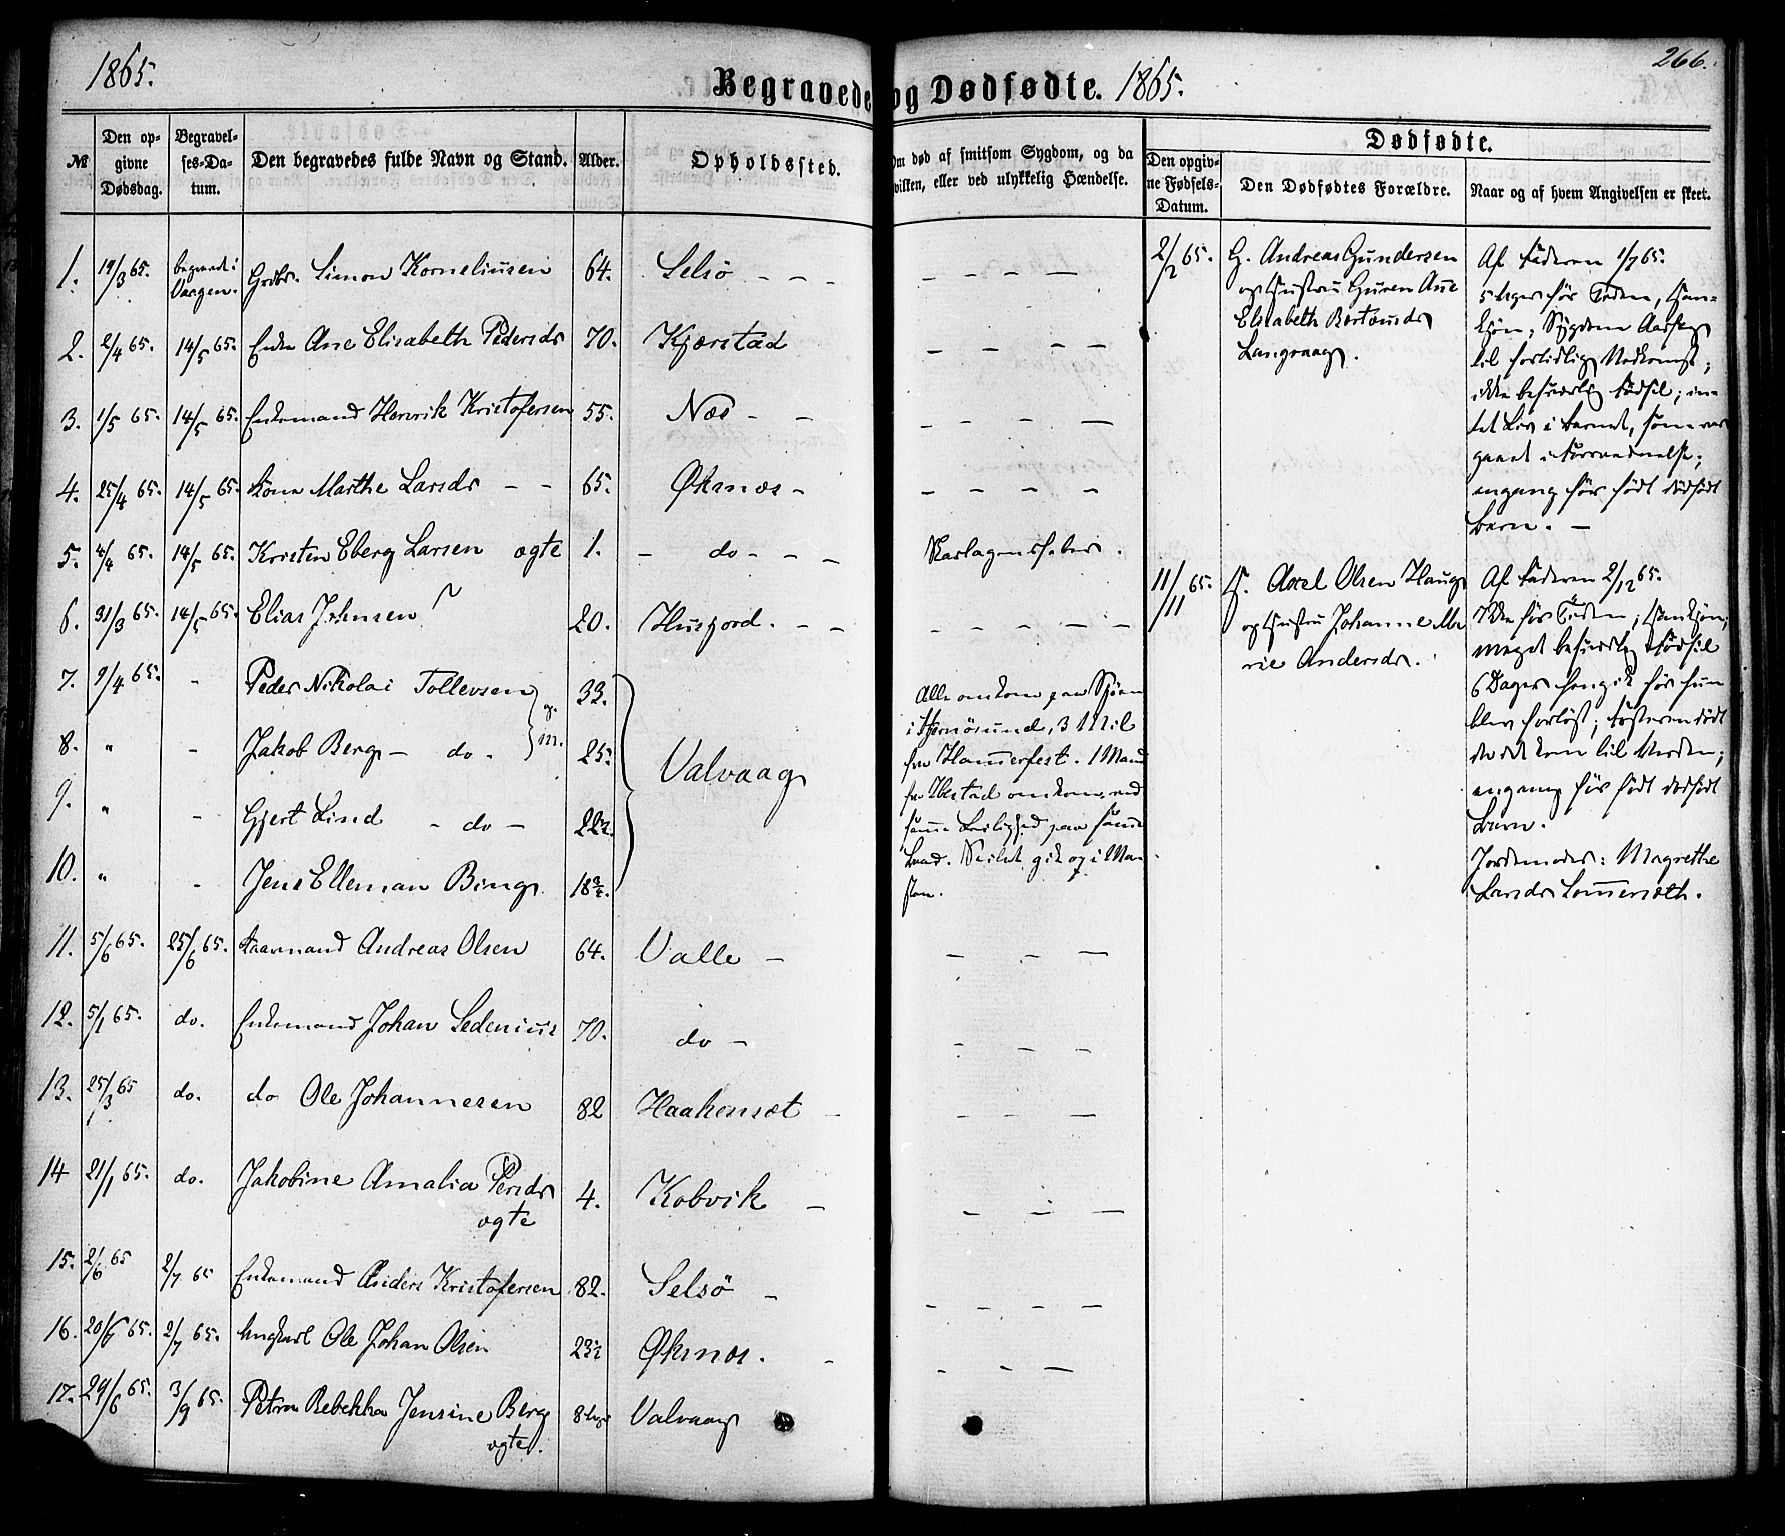 1865.
Begravede og Dødfødte. 1865.
266.
№
Den opgivne Dødsdag.
Begravelses-Datum.
Den begravedes fulde Navn og Stand.
Alder.
Opholdssted.
Om død af smitsom Sygdom, og da hvilken, eller ved ulykkelig Hændelse.
Dødfødte.
Den opgivne Fødsels-Datum.
Den Dødfødtes Forældre.
Naar og af hvem Angivelsen er skeet.
1. 19/3 65. begravet i Vaagen. Grdbr. Simon Korneliusen 64. Selsö - -
2. 2/4 65. 14/5 65. Enke Ane Elisabeth Pedersdr 70. Kjørstad
3. 1/5 65. 14/5 65. Enkemand Henrik Kristofersen 55. Næs - -
4. 25/4 65. 14/5 65. Kone Marthe Larsdr - - 65. Øksnæs -
5. 4/4 65. 14/5 65. Kristen Eberg Larsen ægte 1. - do - - - Skarlagensfeber.
6. 31/3 65. 14/5 65. Elias Johnsen 20. Husjord. - -
7. 9/4 65. - Peder Nikolai Tollevsen g. m. 33.
8. " - Jakob Berg - do - 25.
Valvaag
9. " - Gjert Lind - do - 22½.
10. " - Jens Elleman Bing 18¾.
Alle omkom paa Sjøen
i Stjernösund, 3 Mil
fra Hammerfest. 1 Mand
fra Ibestad omkom ved
samme Leilighed paa samme
Baad. Seilet gik op i Ma-
sten.
11. 5/6 65. 25/6 65. Kaarmand Andreas Olsen 64. Valle -
12. 5/1 65. do. Enkemand Johan Sedenius 70. do -
13. 25/3 65 do. do Ole Johannesen 82 Haakensæt -
14 21/1 65. do. Jakobine Amalia Persdr 4. Kobvik -
ægte
15. 2/6 65 2/7 65 Enkemand Anders Kristofersen 82. Selsö -
16. 20/6 65. 2/7 65. Ungkarl Ole Johan Olsen 23½ Øksnæs. -
17. 29/6 65. 3/9 65. Petra Rebekka Jensine Berg Valvaag
ægte.
2/2 65. G. Andreas Gundersen
og Hustru Guren Ane
Elisabeth Berteusdr
Langvaag.
Af Faderen 1/7 65.
5 Uger før Tiden, Han-
kjøn; Sygdom Aarsag
til fortidlig Nedkomst;
ikke besværlig Fødsel; in-
tet Liv i Barnet, som var
gaaet i Forraadnelse;
engang før født dødfødt
Barn. -
11/11 65. G. Axel Olsen Haug
og Hustru Johanne Ma
rie Andersdr.
Af Faderen 2/12 65.
Ikke før Tiden; Hankjøn;
meget besværlig Fødsel
6 Dage hengik før hun
blev forløst; Fosteret dødt
da det kom til Verden;
engang før født dødfødt
Barn.
Jordemoder: Magrethe
Larsdr Sommersæth.